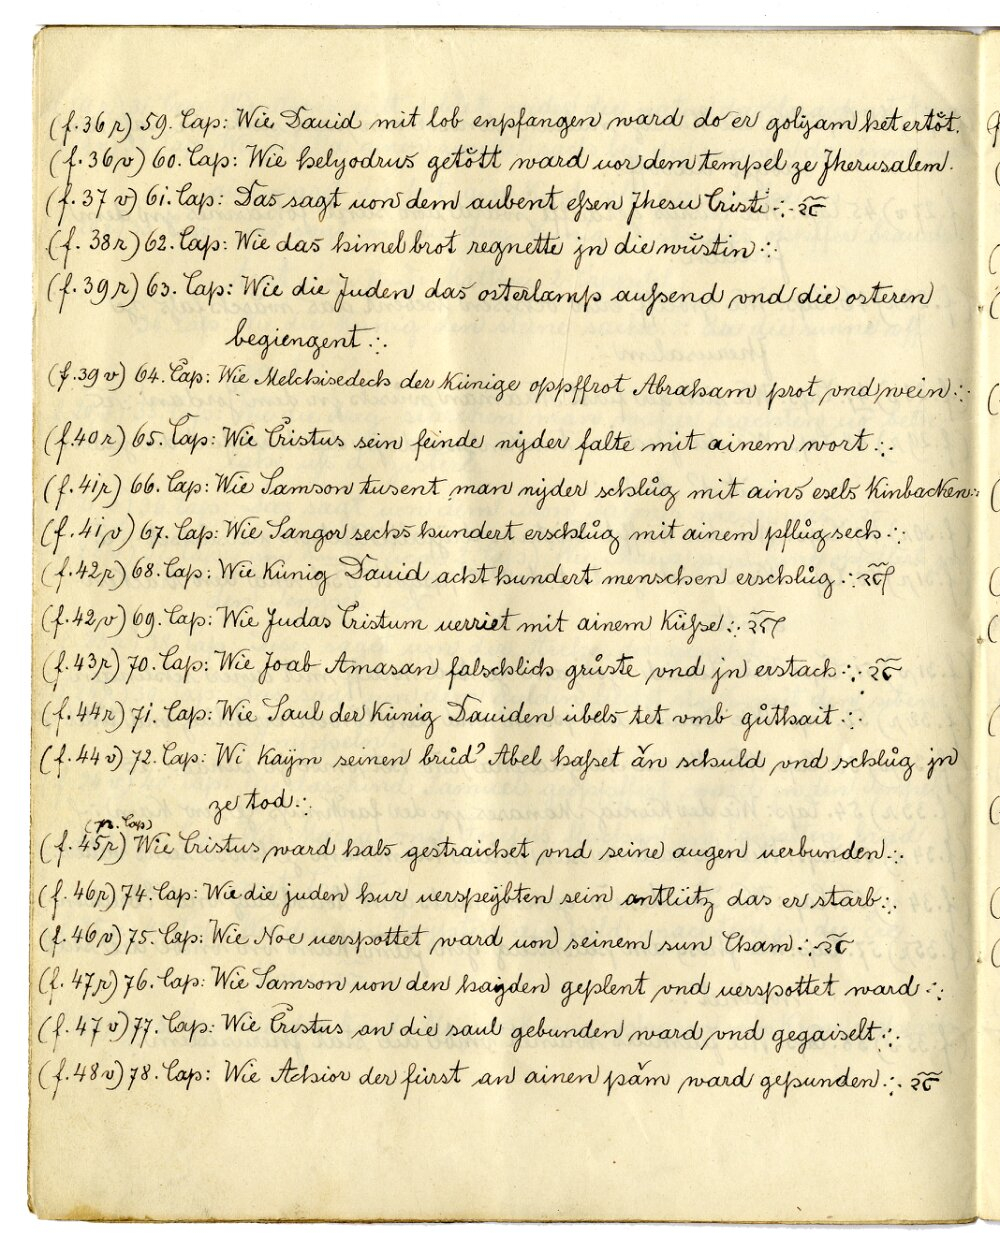 (f. 36 r) 59. Cap: Wie Dauid mit lob enpfangen ward do er golyam het ertöt.
(f. 36 v) 60. Cap: Wie helyodrus getött ward uor dem tempel ze Jherusalem.
(f. 37 v) 61. Cap: Das sagt uon dem aubent eßen Jhesu Cristi ⁖
(f. 38 r) 62. Cap: Wie das himel brot regnette jn die wüstin ⁖
(f. 39 r) 63. Cap: Wie die Juden das osterlamp außend vnd die osteren
begiengent ⁖
(f. 39 v) 64. Cap: Wie Melchisedech der Künige oppffrot Abraham prot vnd wein ⁖
(f. 40 r) 65. Cap: Wie Cristus sein feinde nÿder falte mit ainem wort ⁖
(f. 41 r) 66. Cap: Wie Samson tusent man nÿder schlůg mit ains esels Kinbacken ⁖
(f. 41 v) 67. Cap: Wie Sangor sechs hundert erschlůg mit ainem pflůg sech ⁖
(f. 42 r) 68. Cap: Wie Künig Dauid acht hundert menschen erschlůg ⁖
(f. 42 v) 69. Cap: Wie Judas Cristum uerriet mit ainem Küße ⁖
(f. 43 r) 70. Cap: Wie Joab Amasan falschlich grůste vnd jn erstach ⁖
(f. 44 r) 71. Cap: Wie Saul der Künig Dauiden übels tet vmb gůthait ⁖
(f. 44 v) 72. Cap: Wi Kaÿm seinen brůd' Abel haßet ǎn schuld vnd schlůg jn
ze tod ⁖
(f. 45 r) Wie Cristus ward hals gestraichet vnd seine augen uerbunden ⁖
(f. 46 r) 74. Cap: Wie die juden hur uerspeÿbten sein antlütz das er starb ⁖
(f. 46 v) 75. Cap: Wie Noe uerspottet ward uon seinem sun Cham ⁖
(f. 47 r) 76. Cap: Wie Samson uon den haÿden geplent vnd uerspottet ward ⁖
(f. 47 v) 77. Cap: Wie Cristus an die saul gebunden ward vnd gegaiselt ⁖
(f. 48 v) 78. Cap: Wie Achior der fürst an ainen pǎm ward gepunden ⁖